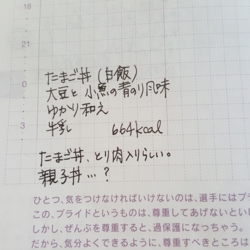 18
21
0
3
たまご丼(白飯)
大豆と小魚の青のり風味
ゆかり和え
牛乳 664kcal
たまご丼、とり肉入りらしい。
親子丼…?
ひとつ、気をつけなければいけないのは、選手にはプラ
この、プライドというものは、尊重してあげないといけ
しかし、ぜんぶを尊重すると、過保護になっちゃう。
だから、気分よくできるように、尊重すべきところと